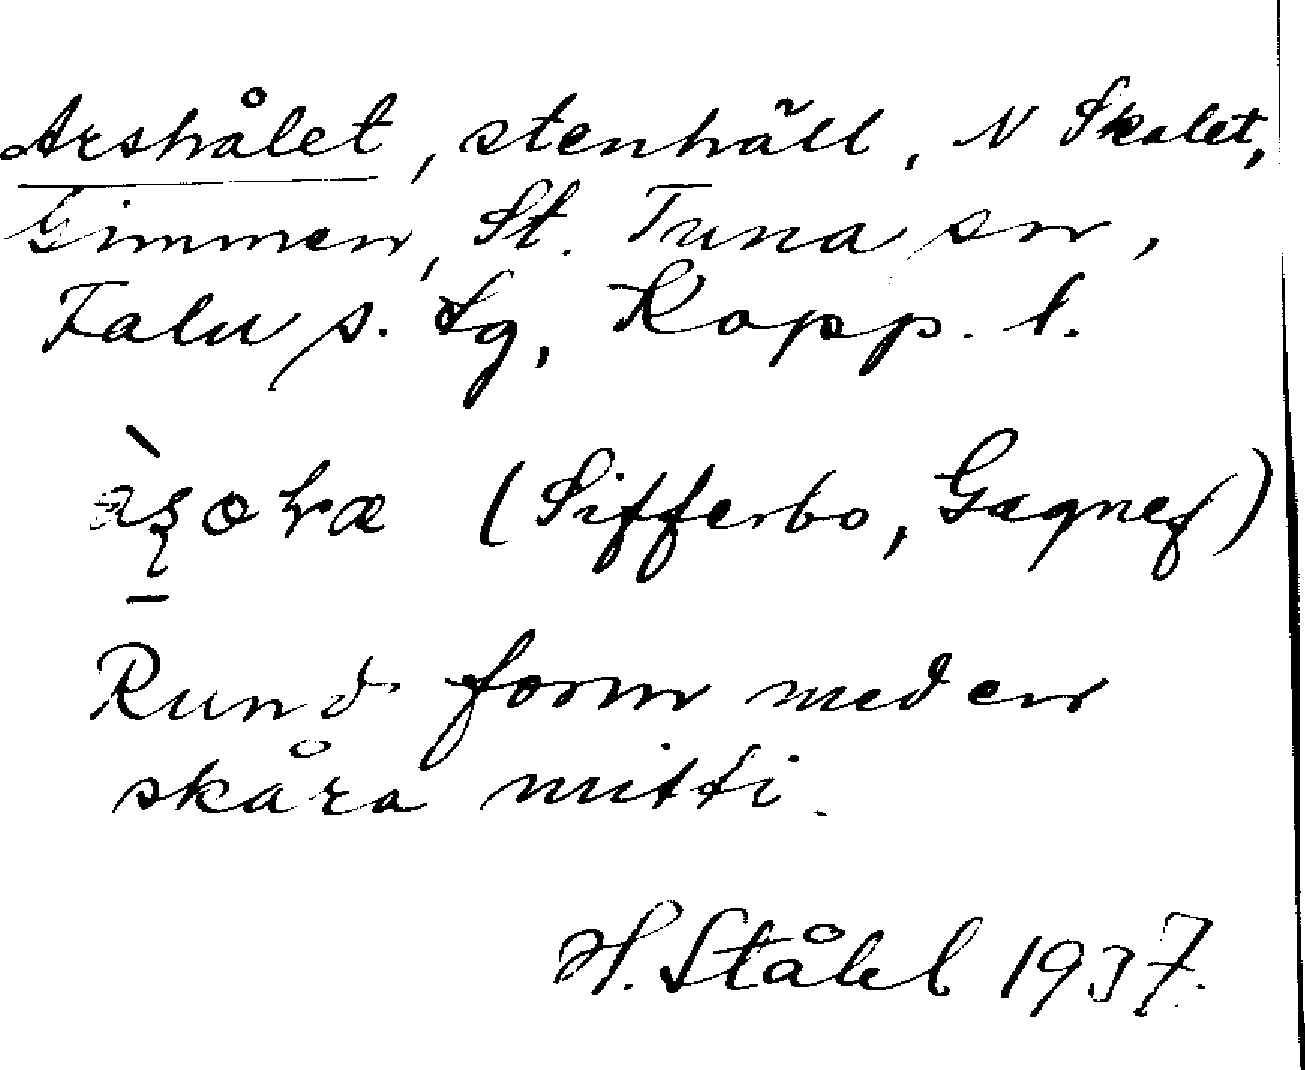 Arshålet, stenhäll, N Skalet,
Gimmen, St. Tuna sn,
Falu s. tg, Kopp. l.
(Sifferbo, Gagnef)
Rund form med en
skåra mitti.
H. Ståhl 1937.